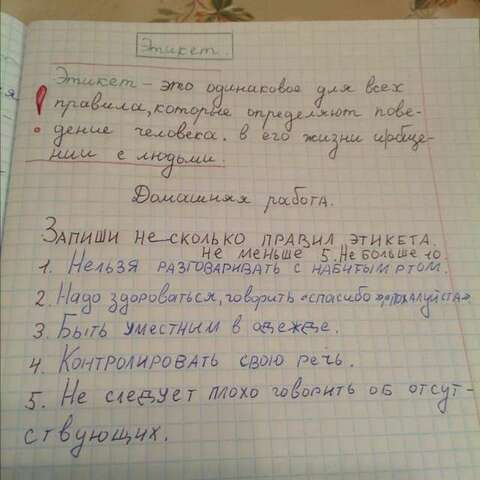 Этикет.
Этикет – это одинаковое для всех
правила, которые определяют пове-
дение человека. в его жизни и обще-
нии с людьми.
Домашняя работа.
Запиши несколько правил этикета.
не меньше 5. Не больше 10.
1. Нельзя разговаривать с набитым ртом.
2. Надо здороваться, говорить «спасибо», «пожалуйста».
3. Быть уместним в одежде.
4. Контролировать свою речь.
5. Не следует плохо говорить об отсут-
ствующих.